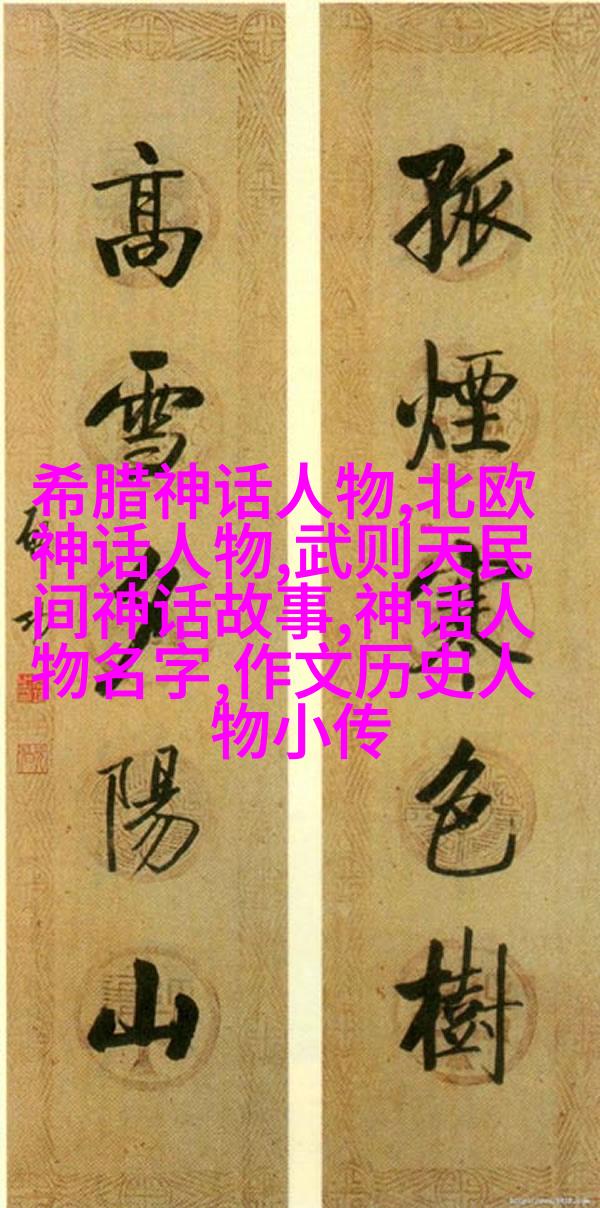 孤煙寒色樹
高雪夕陽山
希腊神话人物,北欧
神话人物,武则天民
间神话故事,神话人
物名字,作文历史人
物小传